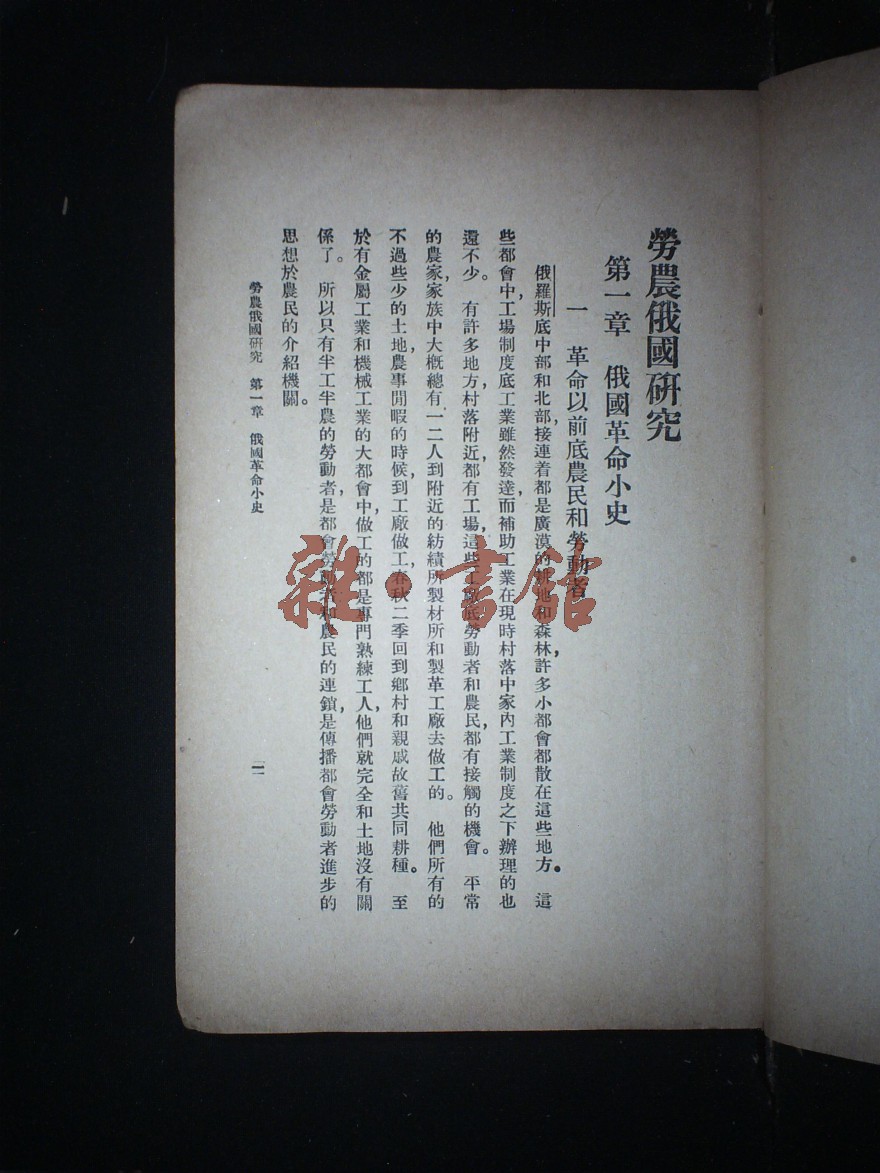 勞農俄國研究
第一章 俄國革命小史
一 革命以前底農民和勞動者
俄羅斯底中部和北部,接連着都是廣漠的耕地和森林,許多小都會都散在這些地方。 這
些都會中,工場制度底工業雖然發達,而補助工業在現時村落中家內工業制度之下辦理的也
還不少。 有許多地方,村落附近都有工場,這些工廠底勞動者和農民,都有接觸的機會。 平常
的農家,家族中大概總有一二人到附近的紡績所製材所和製革工廠去做工的。 他們所有的
不過些少的土地,農事閒暇的時候,到工廠做工,春秋二季回到鄉村和親戚故舊共同耕種。 至
於有金屬工業和機械工業的大都會中做工的都是專門熟練工人,他們就完全和土地沒有關
係了。 所以只有半工半農的勞動者,是都會勞動者和農民的連鎖,是傳播都會勞動者進步的
思想於農民的介紹機關。
勞農俄國研究 第一章 俄國革命小史
一
雜·書館